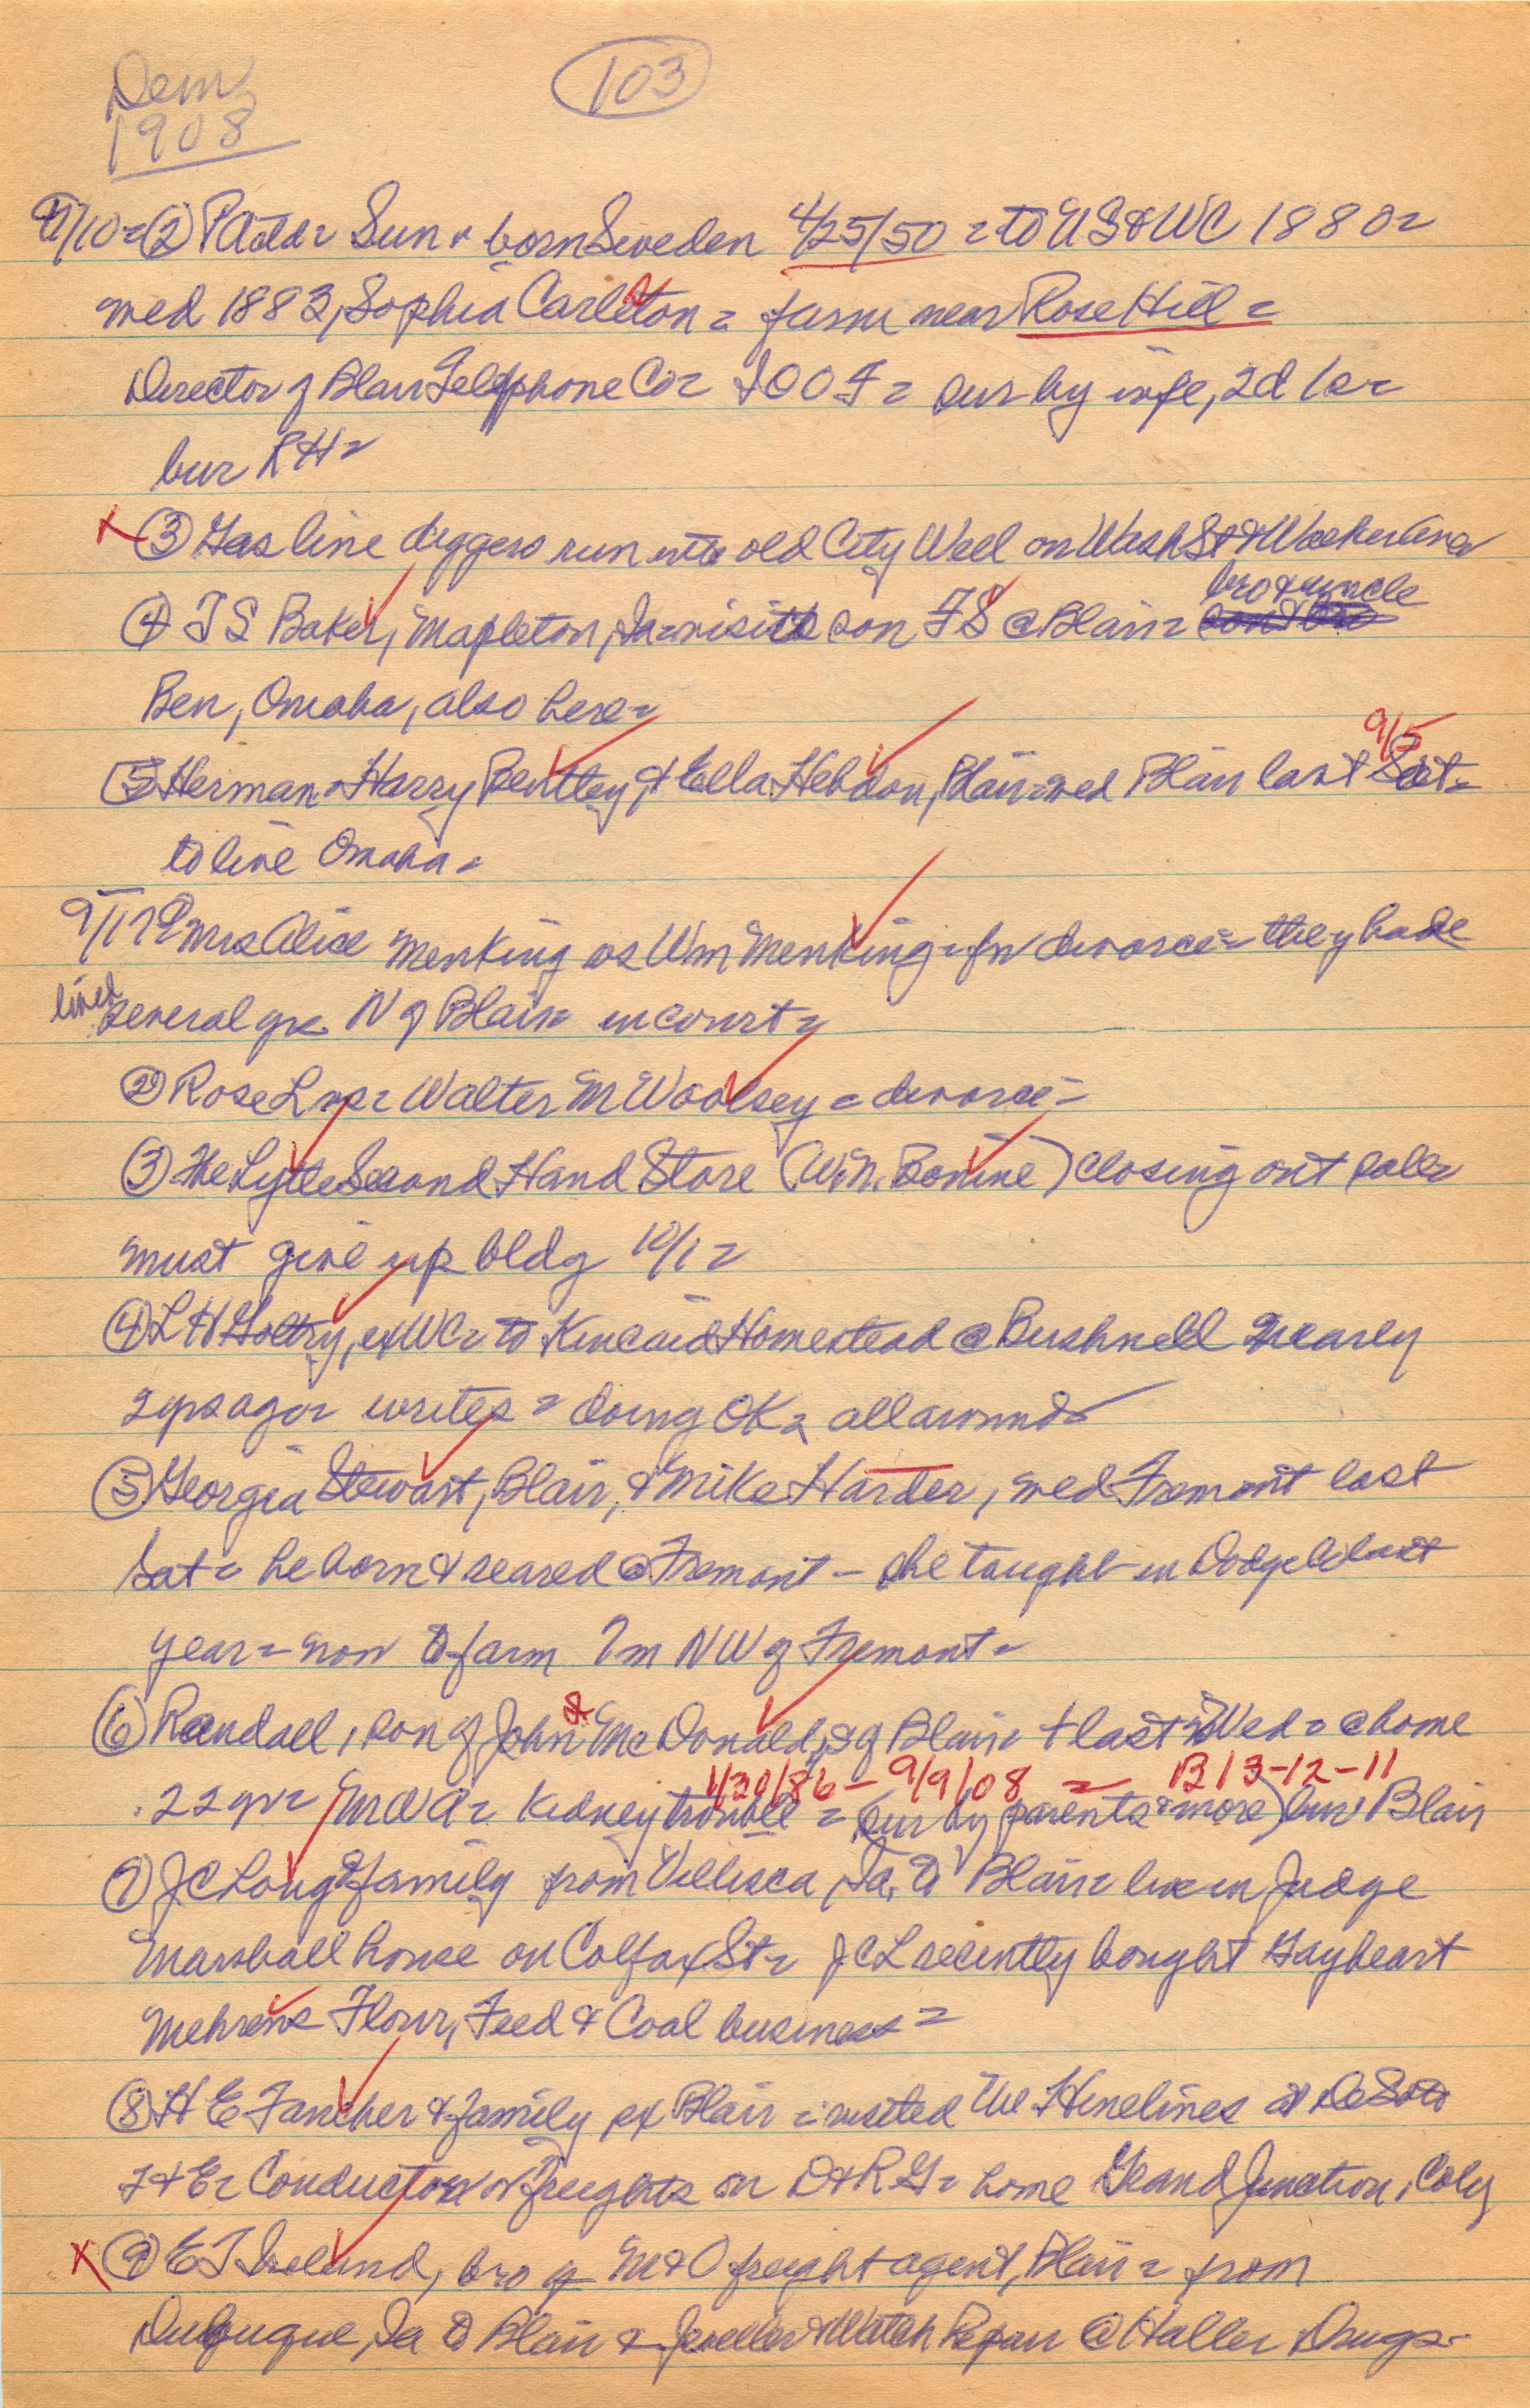 Dem
1908
103
9/10= ② P Add = Sun = born Sweden 4/25/50 = to US & WC 1880=
wed 1883, Sophia Carlston = farm near Rose Hill =
Director of Blair Telephone Co = IOOF = sur by wife, 2d 1s=
bur RH=
x ③ Gas line diggers run into old City Well on Wash St & Walker Ave
④ TS Baker, Mapleton, Ia=visits son FS @ Blair= bro & uncle
Ben, Omaha, also here=
9/5
⑤ Herman=Harry Bentley, & Ella Hebdon, Blair=wed Blair last Sat=
to live Omaha=
9/17 ① Mrs Alice Menking vs Wm Menking=for divorce=they have
lived several yrs N of Blair= in court=
② Rose L vs= Walter M Woolsey = divorce=
③ The Lytle Second Hand Store (W.N. Bonine) closing out sale=
must give up bldg 10/1=
④ L H Goltry, ex WC= to Kincaid Homestead @ Bushnell nearly
2 yrs ago= writes = doing OK= all around=
⑤ Georgia Stewart, Blair, & Mike Harder, wed Fremont last
Sat= he born & reared @ Fremont - she taught in Dodge Co last
year= now to farm 7m NW of Fremont=
⑥ Randall, son of John & McDonald, s of Blair= + last Wed= @ home
1/20/86 - 9/9/08 = B13-12-11
22 yr= MWA= kidney trouble = (sur by parents & more) bur Blair
⑦ JC Long & family from Villisca, Ia, to Blair= live in Judge
Marshall house on Colfax St= JCL recently bought Gayheart
Mehrens Flour, Feed & Coal business=
⑧ H E Fancher & family ex Blair = visited The Hinelines at DeSoto
F & E= Conductor of freights on D&RG= home Grand Junction, Colo
x ⑨ E T Ireland, bro of M&O freight agent, Blair= from
Dubuque, Ia to Blair & Jeweller & Watch Repair @ Haller Drugs-